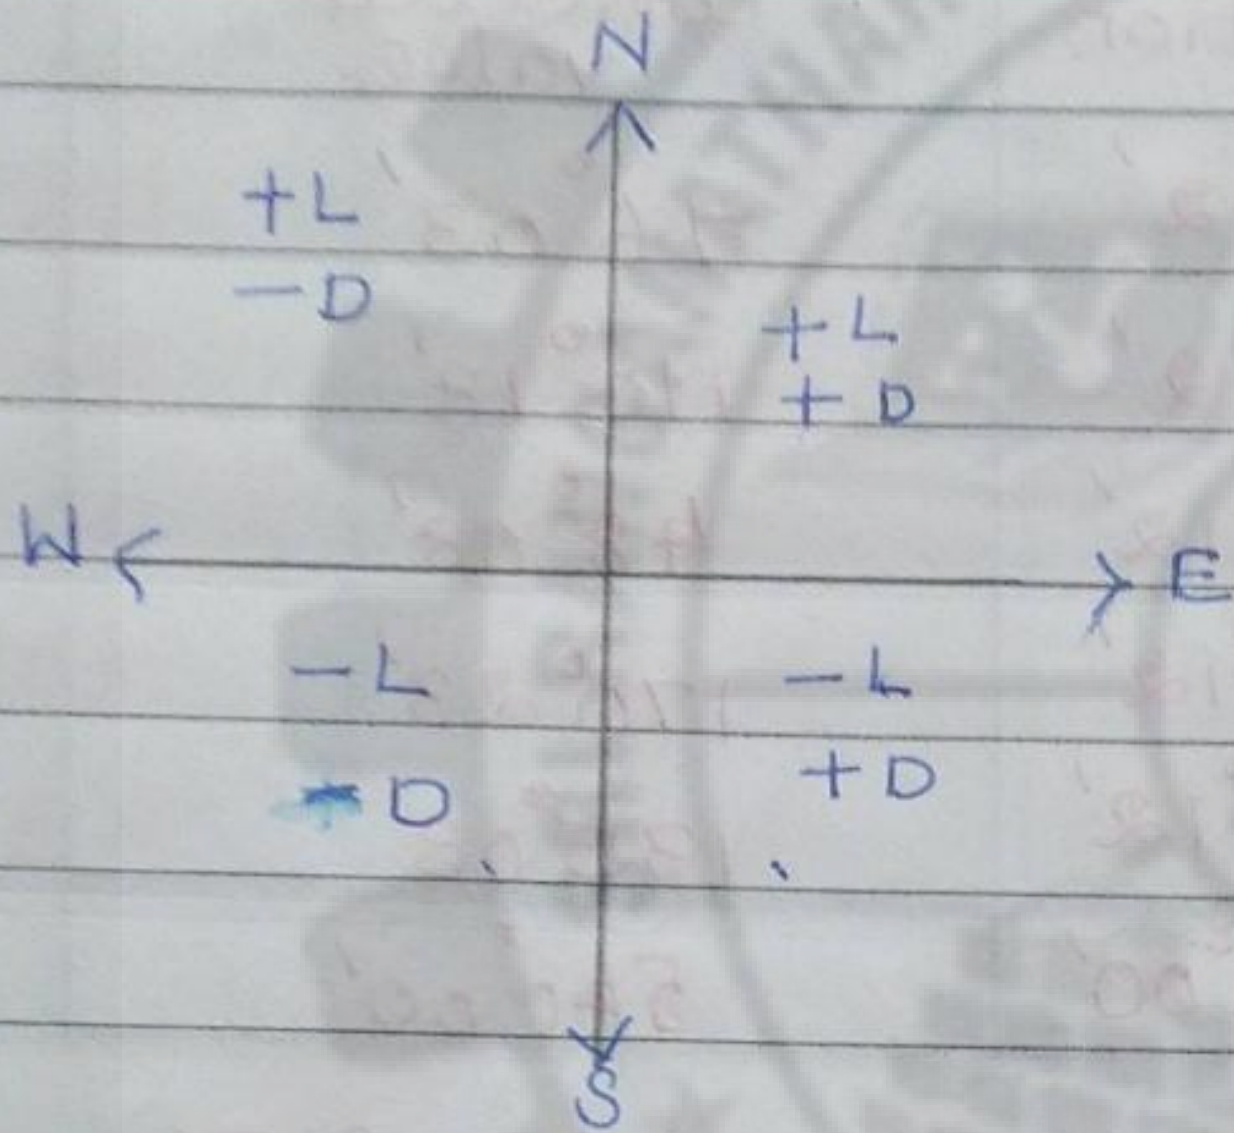 N
+L
-D
+L
+D
W
E
-L
-D
-L
+D
S